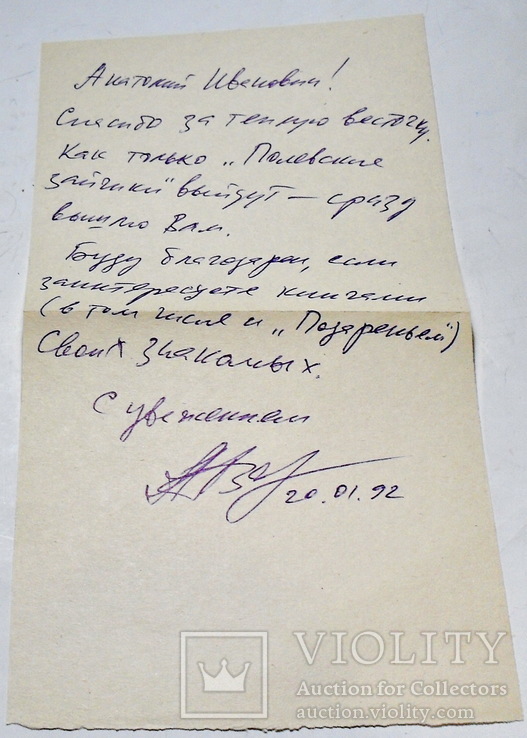 Анатолий Иванович!
Спасибо за теплую весточку.
Как только „Полевские
зайчики" выйдут — сразу
вышлю Вам.
Буду благодарен, если
заинтересуете книгами
(в том числе и „Позареньем")
своих знакомых.
С уважением
20.01.92
VIOLITY
Auction for Collectors
auction.violity.com